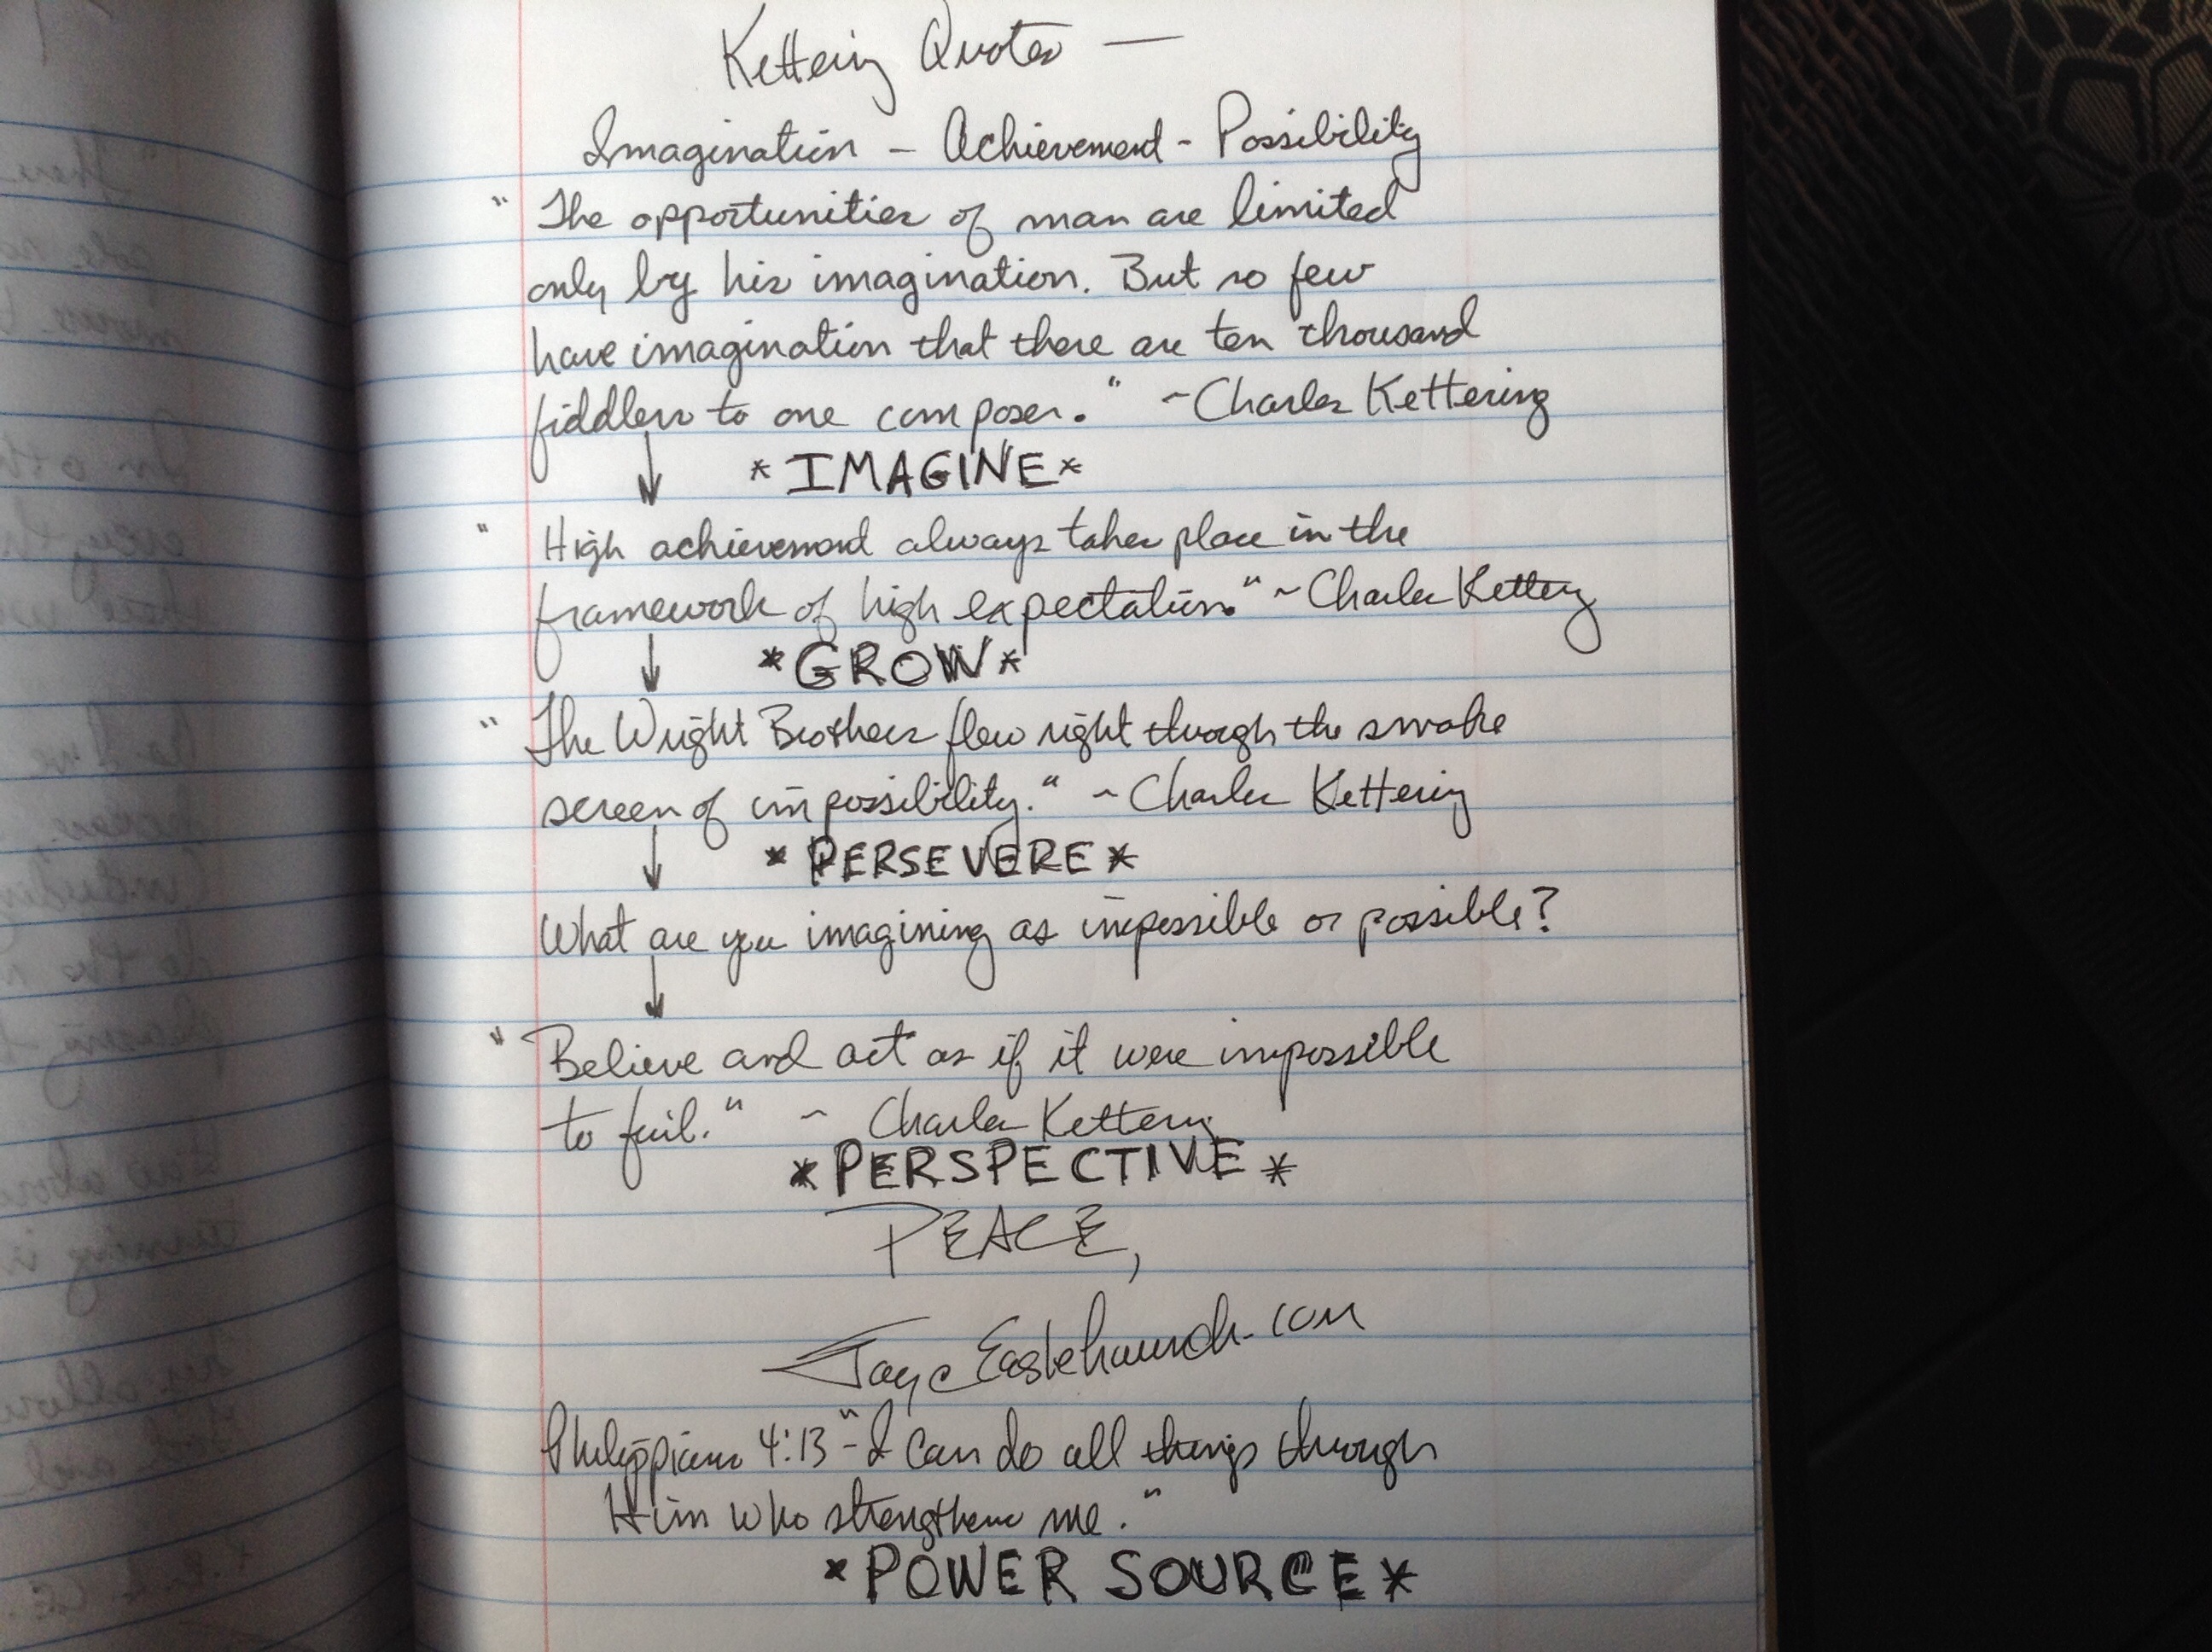 Kettering Quotes —
Imagination - Achievement - Possibility
"The opportunities of man are limited
only by his imagination. But so few
have imagination that there are ten thousand
fiddlers to one composer." ~Charles Kettering
*IMAGINE*
"High achievement always takes place in the
framework of high expectation." ~Charles Kettering
*GROW*
"The Wright Brothers flew right through the smoke
screen of impossibility." ~Charles Kettering
*PERSEVERE*
What are you imagining as impossible or possible?
"Believe and act as if it were impossible
to fail." ~ Charles Kettering
*PERSPECTIVE*
PEACE,
Philippians 4:13 - "I can do all things through
Him who strengthens me."
*POWER SOURCE*